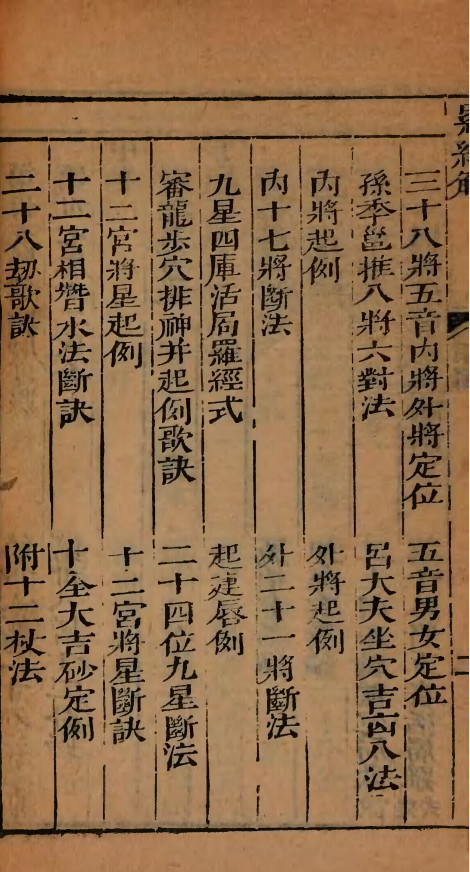 三十八將五音内將外將定位　五音男女定位
孫季邕推八將六對法　呂大夫坐穴吉凶八法
内將起例　外將起例
内十七將斷法　外二十一將斷法
九星四庫活局羅經式　起建唇例
審龍步穴排神并起例歌訣　二十四位九星斷法
十二宮將星起例　十二宮將星斷訣
十二宮相朁水法斷訣　十全大吉砂定例
二十八劫歌訣　附十二杖法